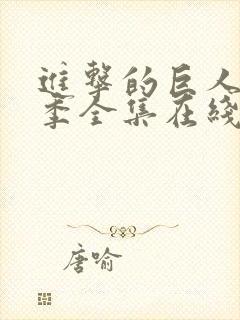 進擊的巨人
季全集在綫
唐喻